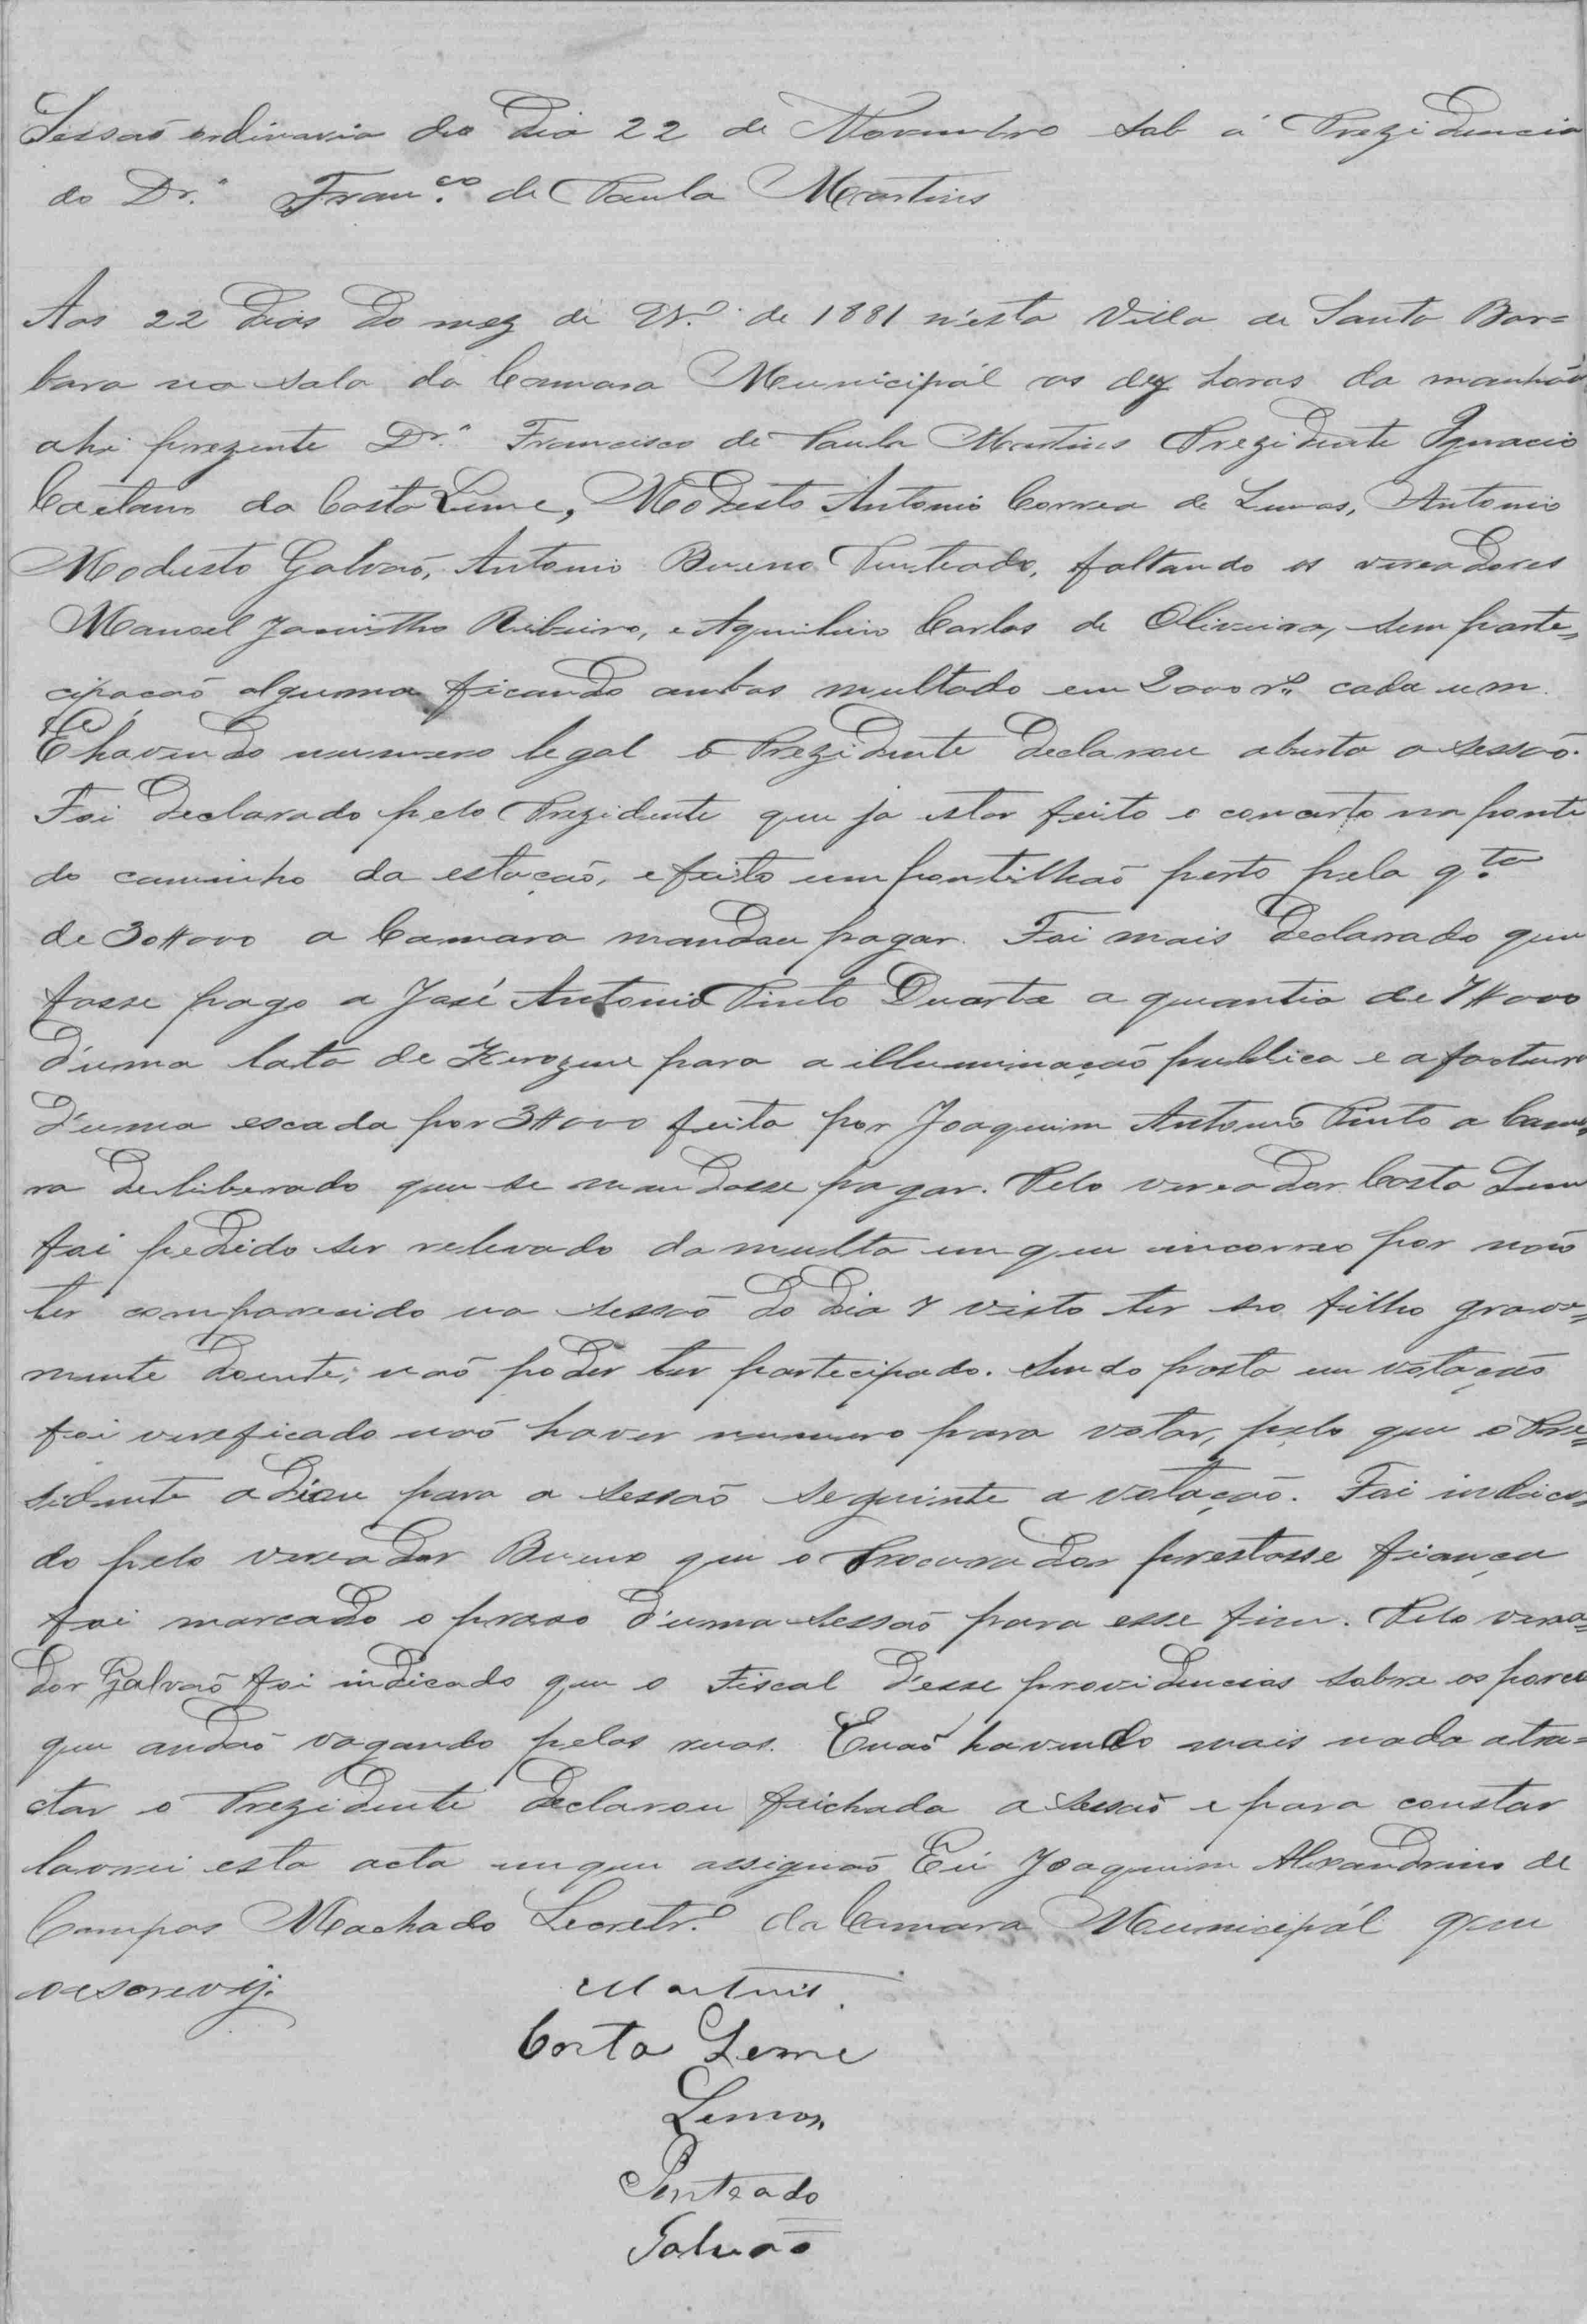 Sessaõ ordinaria do dia 22 de Novembro sob á Prezidencia
do Dr.º Fran.co de Paula Martins
Aos 22 dias do mez de N.º de 1881 n'esta Villa de Santa Bar=
bara na sala da Camara Municipál as dez horas da manhãa
ahi prezente Dr.º Francisco de Paula Martins Prezidente Ignacio
Caetano da Costa Leme, Modesto Antonio Correa de Lemos, Antonio
Modesto Galvaõ, Antonio Bueno Penteado, faltando os vereadores
Manoel Jacintho Ribeiro, e Aquilino Carlos de Oliveira, sem parte=
cipacaõ alguma ficando ambos multado em 2000 rs. cada um.
E havendo numero legal o Prezidente declarou aberta a sessaõ.
Foi declarado pelo Prezidente que ja estar feito o concerto na ponte
do caminho da estaçaõ, e feito um pontilhaõ perto pela q.ta
de 30#000 a Camara mandou pagar. Foi mais declarado que
fosse pago a José Antonio Pinto Duarte a quantia de 7#000
d'uma lata de Kerozene para a illuminaçaõ publica e a factura
d'uma escada por 3#000 feita por Joaquim Antonio Pinto a Cama=
ra deliberado que se mandasse pagar. Pelo vereador Costa Leme
foi pedido ser relevado da multa em que incorreo por naõ
ter comparecido na sessaõ do dia 7 visto ter seo filho grave=
mente doente, naõ poder ter partecipado. Sendo posta em votaçaõ
foi vereficado naõ haver numero para votar, pelo que o Pre=
sidente adiou para a sessaõ seguinte a votaçaõ. Foi indica=
do pelo vereador Bueno que o Procurador prestasse fiança
foi marcado o praso d'uma sessaõ para esse fim. Pelo verea=
dor Galvaõ foi indicado que o Fiscal d'esse providencias sobre os porcos
que andaõ vagando pelas ruas. E naõ havendo mais nada a tra=
ctar o Prezidente declarou feichada a sessaõ e para constar
lavrei esta acta em que assignaõ Eu Joaquim Alexandrino de
Campos Machado Secretr.º da Camara Municipál que
o escrevij.
Martins.
Costa Leme
Lemos
Penteado
Galvaõ